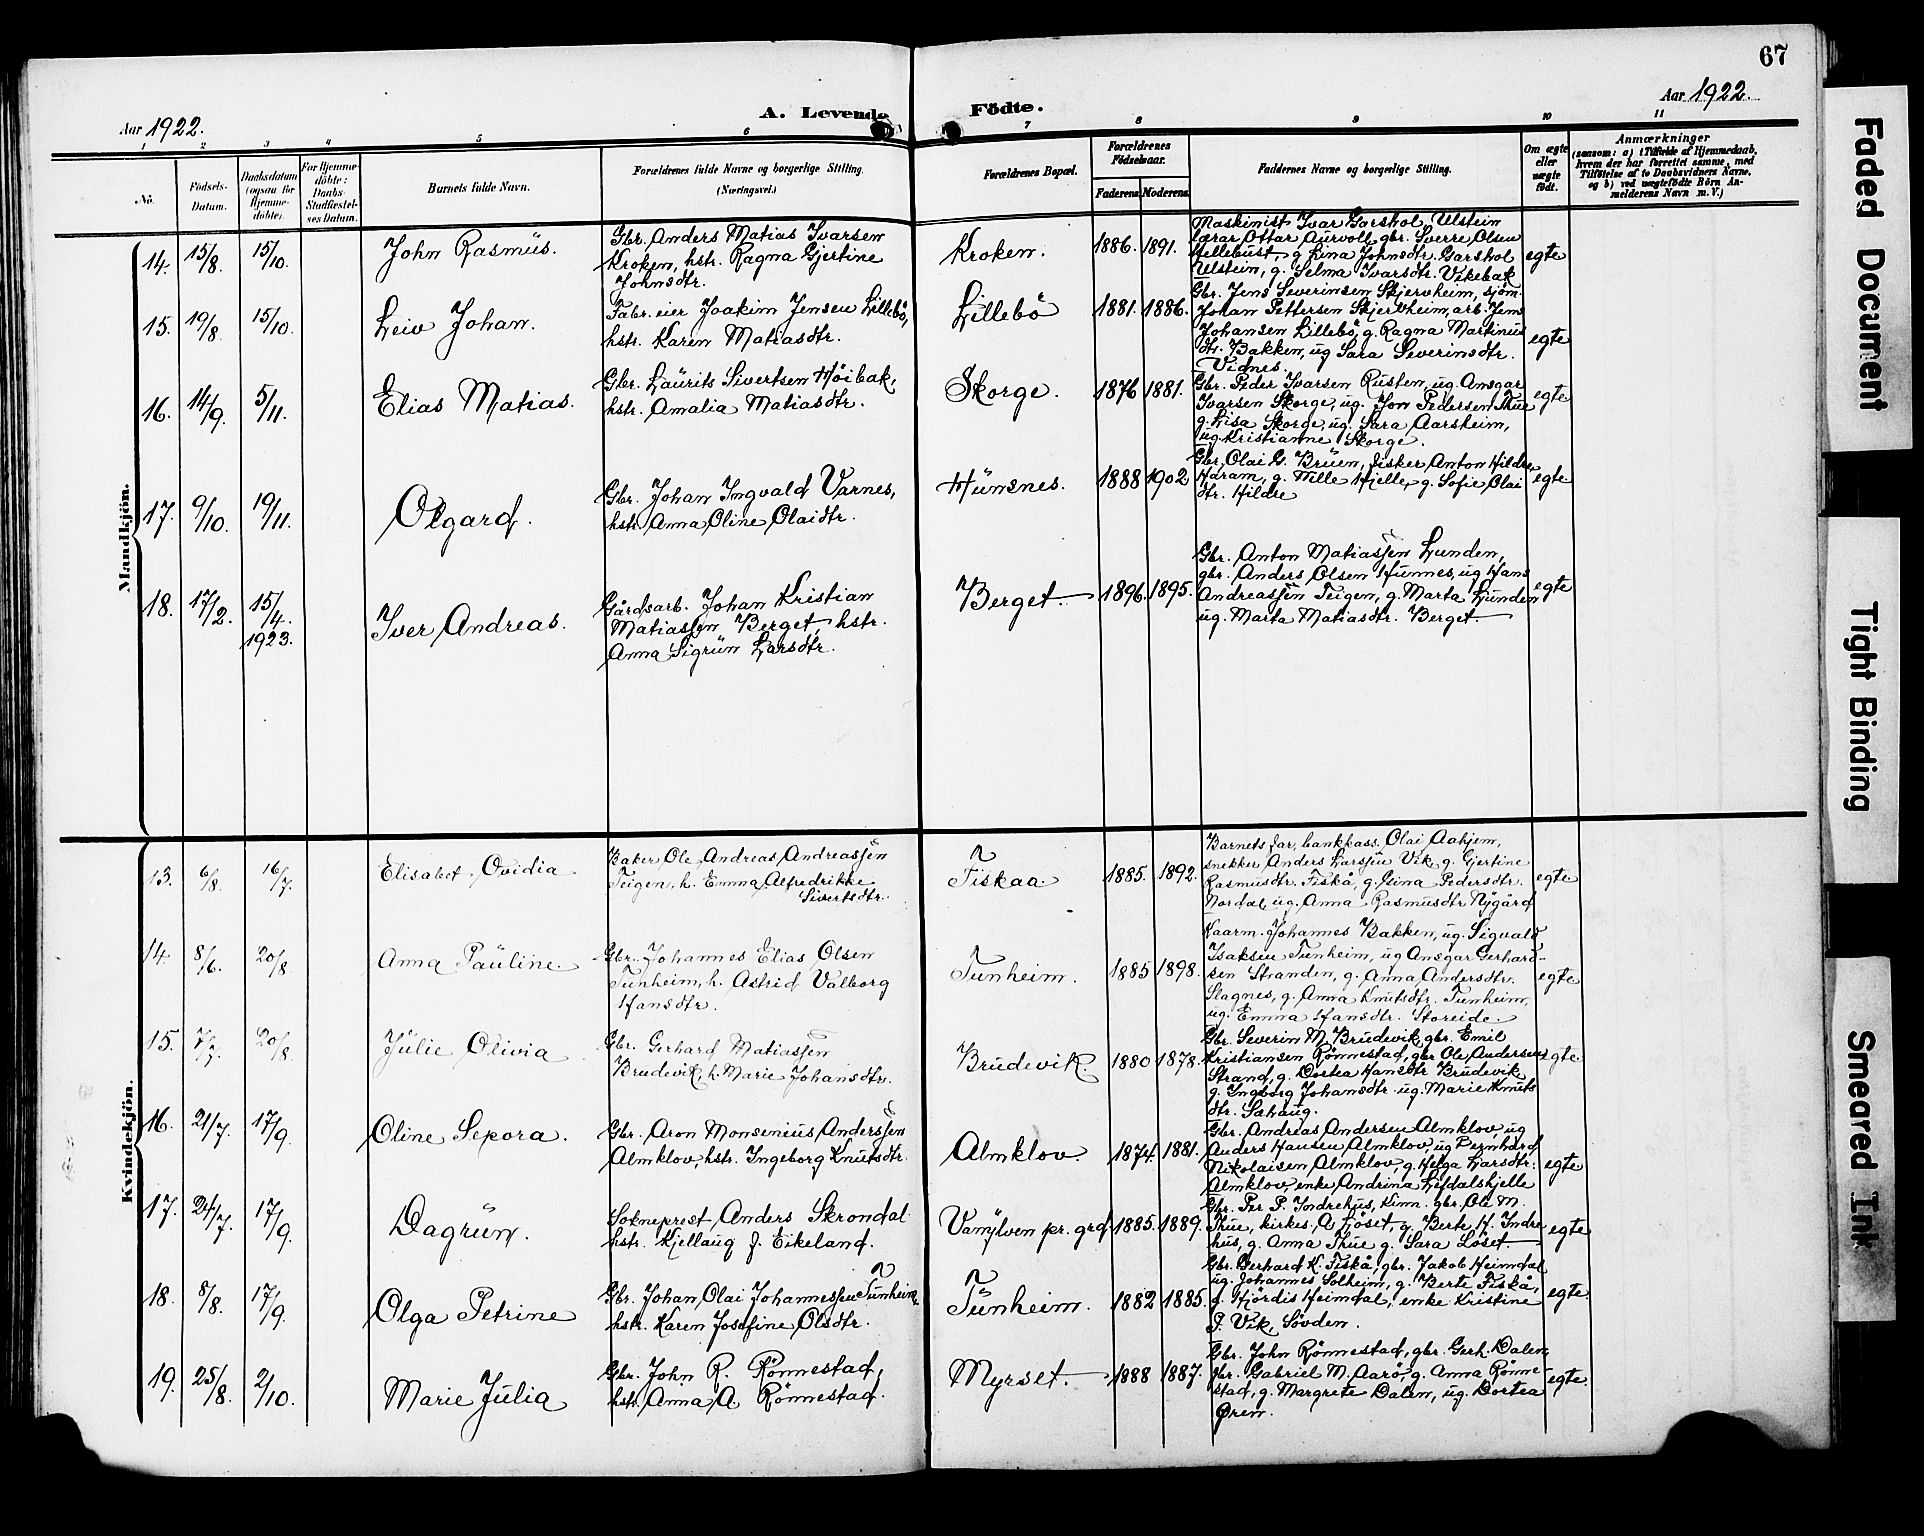 67
Aar 1922.
A. Levende Födte.
Aar 1922.
1 2 3 4 5 6 7 8 9 10 11
No.
Födsels-Datum.
Daabsdatum (ogsaa for Hjemme-döbte).
For Hjemme-döbte: Daabs-Stadfæstel-ses Datum.
Barnets fulde Navn.
Forældrenes fulde Navne og borgerlige Stilling.
(Næringsvei.)
Forældrenes Bopæl.
Forældrenes Födselsaar.
Faderens. Moderens.
Faddernes Navne og borgerlige Stilling.
Om ægte eller uægte födt.
Anmærkninger
(saasom: a) i Tilfælde af Hjemmedaab,
hvem der har forrettet samme, med
Tilföielse af to Daabsvidners Navne,
og b) ved uægtefödte Börn An-
melderens Navn m. V.)
Mandkjön.
14. 15/8. 15/10. John Rasmus.
Gbr. Anders Matias Ivarsen
Kroken, hstr. Ragna Gjertine
Johnsdtr.
Kroken. 1886. 1891.
Maskinist Ivar Garshol, Ulstein
lærar Ottar Aurvoll, gbr. Sverre Olsen
Hellebust, g. Lina Johnsdtr. Garshol
Ulstein, g. Selma Ivarsdtr. Vikebak
egte
15. 19/8. 15/10. Leiv Johan.
Fabr.eier Joakim Jensen Lillebö,
hstr. Karen Matiasdtr.
Lillebö 1881. 1886.
Gbr. Jens Severinsen Skjervheim, sjöm.
Johan Pettersen Skjervheim, arb. Jens
Johansen Lillebö, g. Ragna Martinus
dtr. Bakken, ug Sara Severinsdtr.
Vidnes.
egte
16. 14/9. 5/11. Elias Matias.
Gbr. Laurits Sivertsen Höibak,
hstr. Amalia Matiasdtr.
Skorge. 1876 1881.
Gbr. Peder Ivarsen Rusten, ug. Ansgar
Ivarsen Skorge, ug. Jon Pedersen Thue
g. Lisa Skorge, ug. Sara Aarsheim,
ug. Kristianne Skorge.
egte
17. 9/10. 19/11. Olgard.
Gbr. Johan Ingvald Varnes,
hstr. Anna Oline Olaidtr.
Hunsnes. 1888 1902
Gbr. Olai G. Bruen, fisker Anton Hildre
Haram, g. Wille Hjelle, g. Sofie Olai
dtr. Hildre
egte
18. 17/2. 15/4. 1923. Iver Andreas.
Gårdsarb. Johan Kristian
Matiassen Berget, hstr.
Anna Sigrun Larsdtr.
Berget. 1896. 1895.
Gbr. Anton Matiassen Lunden,
gbr. Anders Olsen Hunnes, ug Hans
Andreassen Teigen, g. Marta Lunden
ug. Marta Matiasdtr. Berget.
egte
Kvindekjön.
13. 6/8. 16/7. Elisabet Ovidia
Baker Ole Andreas Andreassen
Teigen, h. Emma Alfredrikke
Sivertsdtr.
Fiskaa 1885. 1892.
Barnets far, bankkass. Olai Aahjem,
snekker Anders Larssen Vik, g. Gjertine
Rasmusdtr. Fiskå, g. Jsina Pedersdtr.
Nordal, ug. Anna Rasmusdtr Nygård
egte
14. 8/6. 20/8. Anna Pauline.
Gbr. Johannes Elias Olsen
Tunheim, h. Astrid Valborg
Hansdtr.
Tunheim. 1885 1898.
Kaarm. Johannes Bakken, ug. Sigvald
Isaksen Tunheim, ug Ansgar Gerhard-
sen Stranden, g. Anna Andersdtr.
Slagnes, g. Anna Knutsdtr. Tunheim,
ug. Emma Hansdtr. Storeide.
egte
15. 7/7. 20/8. Julie Olivia
Gbr. Gerhard Matiassen
Brudevik, h. Marie Johansdtr.
Brudevik. 1880 1878.
Gbr. Severin M. Brudevik, gbr. Emil
Kristiansen Rönnestad, gbr Ole Andersen
Strand, g. Dortea Hansdtr Brudevik,
g. Ingborg Johansdtr. ug. Marie Knuts
dtr. Sahaug.
egte
16. 21/7. 17/9. Oline Sepora.
Gbr. Aron Monsenius Anderssen
Almklov, hstr. Ingeborg Knutsdtr.
Almklov. 1874. 1881.
Gbr. Andreas Andersen Almklov, ug
Anders Hansen Almklov, ug Bernhard
Nikolaisen Almklov, g. Helga Larsdtr.
Almklov, enke Andrina Lifdalshjelle
egte
17. 24/7. 17/9. Dagrun.
Sokneprest Anders Skrondal
hstr. Kjellaug f. Eikeland.
Vanylven pr. grd 1885. 1889.
Gbr. Per P. Indrehus, Kinn. gbr. Ole M.
Thue, kirkes. A Löset, g. Berte H. Indre
hus, g. Anna Thue g. Sara Löset.
egte
18. 8/8. 17/9. Olga Petrine
Gbr. Johan Olai Johannessen Tunheim,
hstr. Karen Josefine Olsdtr.
Tunheim. 1882 1885.
Gbr. Gerhard K. Fiskå, gbr. Jakob Heimdal
ug. Johannes Solheim, g. Berte Fiskå,
g. Hjördis Heimdal, enke Kristine
P. Vik, Sövden.
egte.
19. 25/8. 2/10. Marie Julia
Gbr. John R. Rönnestad,
hstr. Anna A Rönnestad.
Myrset. 1888 1887.
Gbr. John Rönnestad, gbr. Gerh. Dalen,
fbr. Gabriel M. Aarö, g. Anna Rönne-
stad, g. Margrete Dalen, ug. Dortea
Ören.
egte.
Faded Document
Tight Binding
Smeared Ink